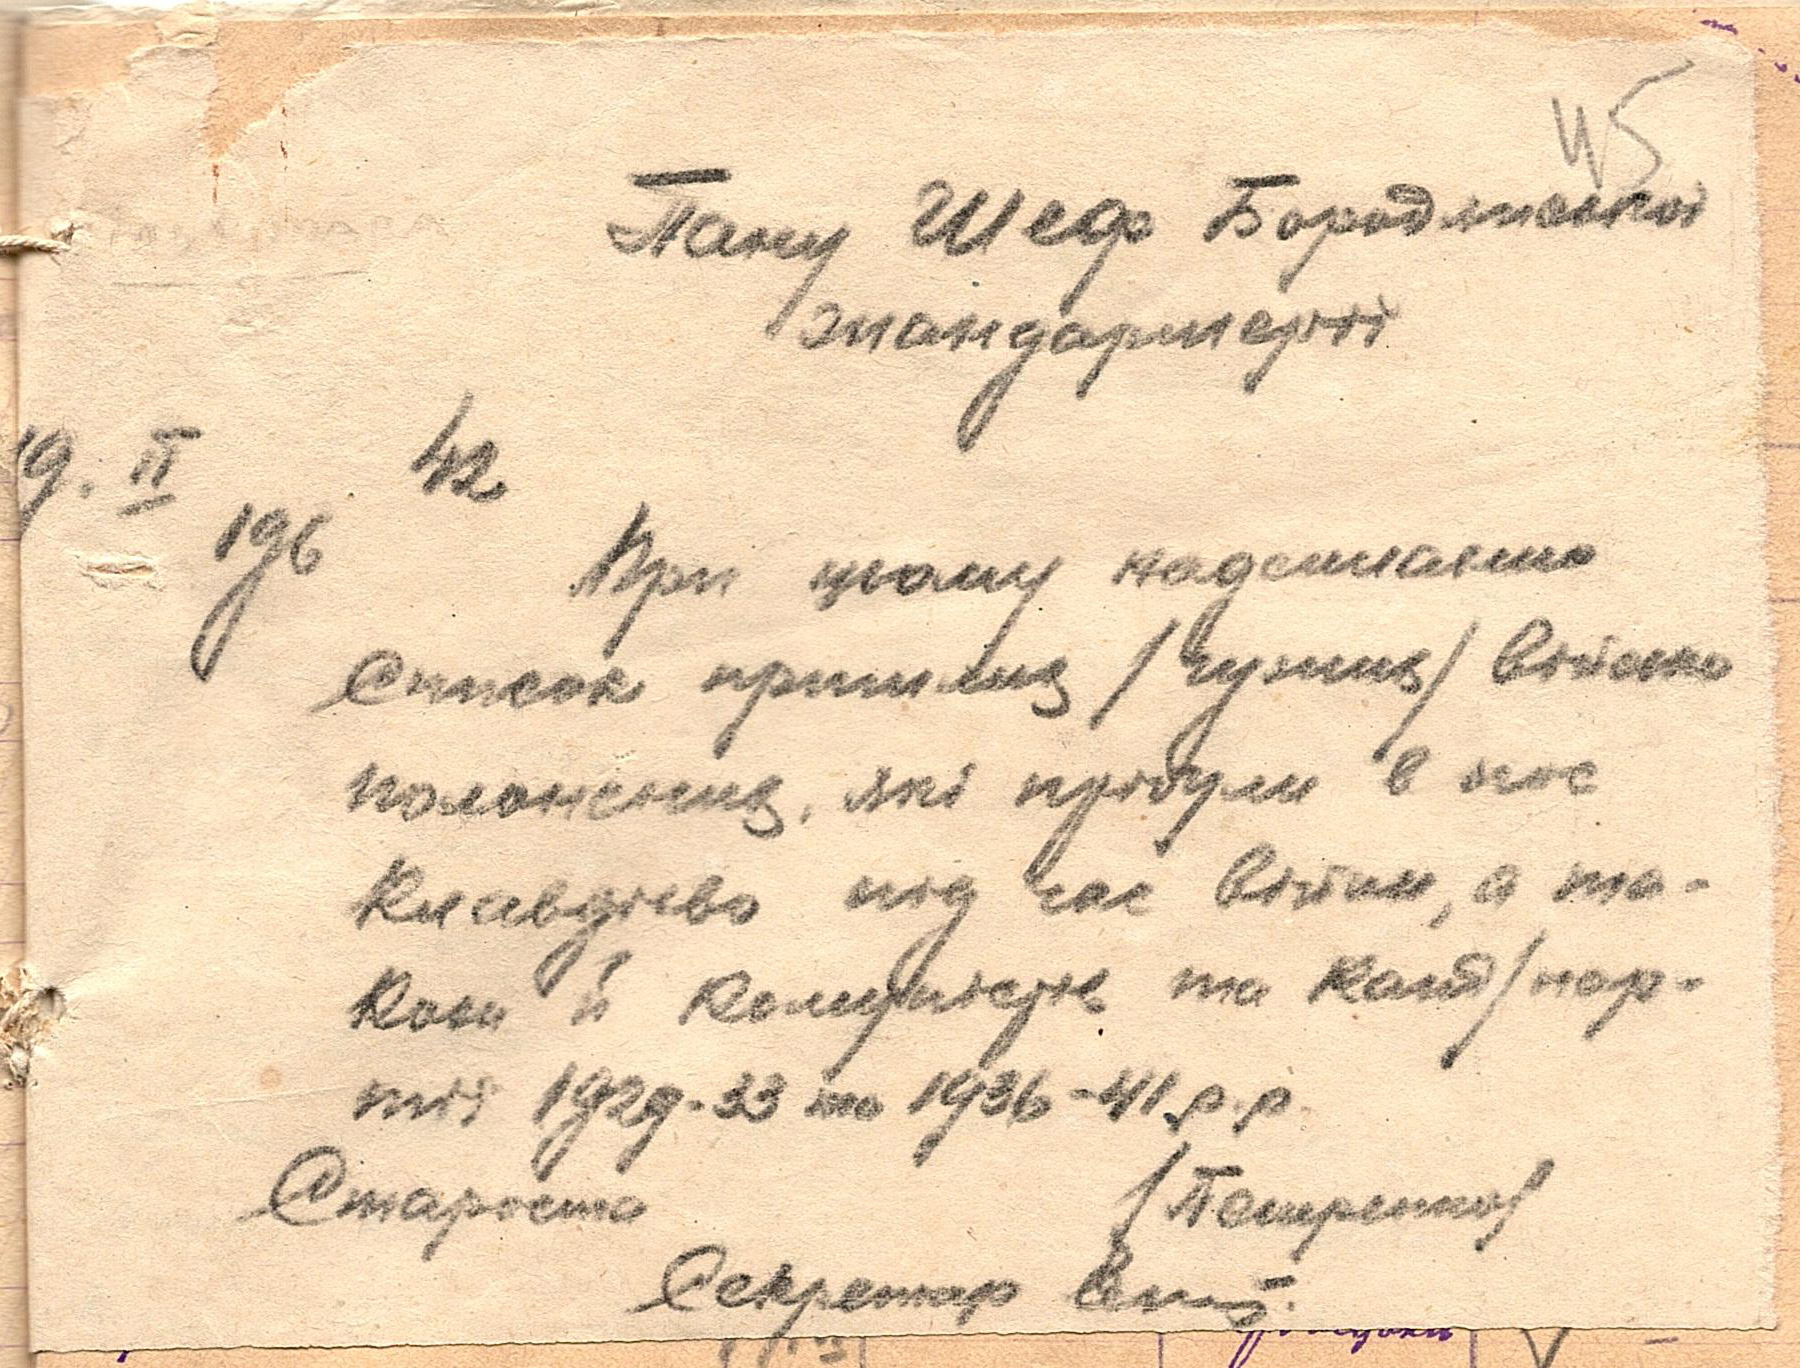 45
Пану Шеф Бородянської
жандармерії
19. II 42
196
При цьому надсилаємо
Список пришлих /чужих/ військо
полонених, які прибули в пос
Клавдієво під час війни, а та-
кож й комуністів та канд/пар-
тії 1929-33 та 1936-41 р.р.
Староста /Петренко/
Секретар